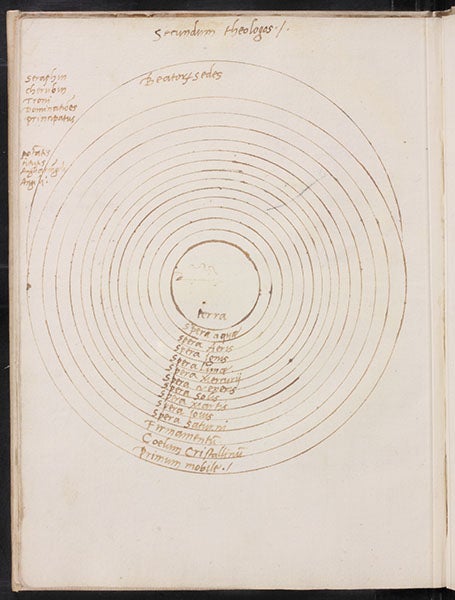 Secundum theologos ./.
Beatorꝝ sedes
Seraphin
cherubin
Troni
Dominatioēs
principatus
Terra
Spera aquæ
Spera Aeris
Spera Ignis
Spera Lunæ
Spera Mercurij
Spera veneris
Spera Solis
Spera Martis
Spera Iouis
Spera Saturni
Firmamentū
Coelum Cristallinū
Primum mobile ./